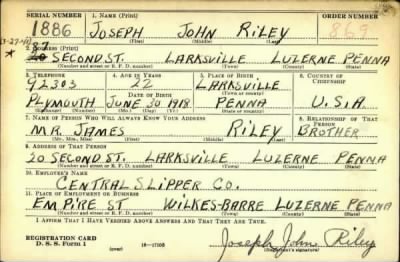 SERIAL NUMBER 1. NAME (Print) ORDER NUMBER
1886 JOSEPH JOHN RILEY 869
(First) (Middle) (Last)
2. ADDRESS (Print)
SECOND ST. LARKSVILLE LUZERNE PENNA
(Number and street or R. F. D. number) (Town) (County) (State)
3. TELEPHONE 4. AGE IN YEARS 5. PLACE OF BIRTH 6. COUNTRY OF CITIZENSHIP
92303 22 LARKSVILLE
DATE OF BIRTH
PLYMOUTH JUNE 30 1918 PENNA U.S.A
(Exchange) (Mo.) (Day) (Yr.) (State or country)
7. NAME OF PERSON WHO WILL ALWAYS KNOW YOUR ADDRESS 8. RELATIONSHIP OF THAT PERSON
MR. JAMES RILEY BROTHER
(Mr., Mrs., Miss) (First) (Middle) (Last)
9. ADDRESS OF THAT PERSON
20 SECOND ST. LARKSVILLE LUZERNE PENNA
(Number and street or R. F. D. number) (Town) (County) (State)
10. EMPLOYER'S NAME
CENTRAL SLIPPER CO.
11. PLACE OF EMPLOYMENT OR BUSINESS
EMPIRE ST WILKES-BARRE LUZERNE PENNA
(Number and street or R. F. D. number) (Town) (County) (State)
I AFFIRM THAT I HAVE VERIFIED ABOVE ANSWERS AND THAT THEY ARE TRUE.
REGISTRATION CARD
D. S. S. Form 1 (over) 16-17105 Joseph John Riley